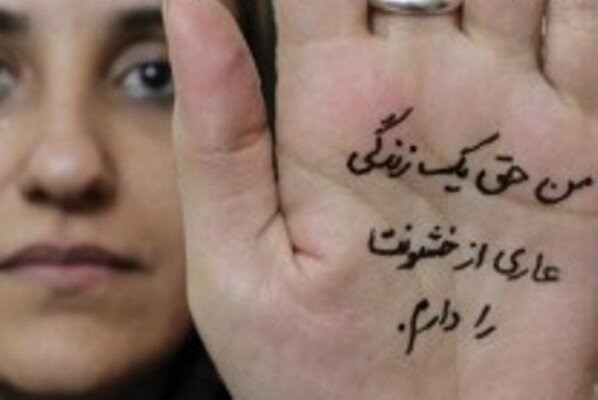 من حق یک زندگی
عاری از خشونت
را دارم.